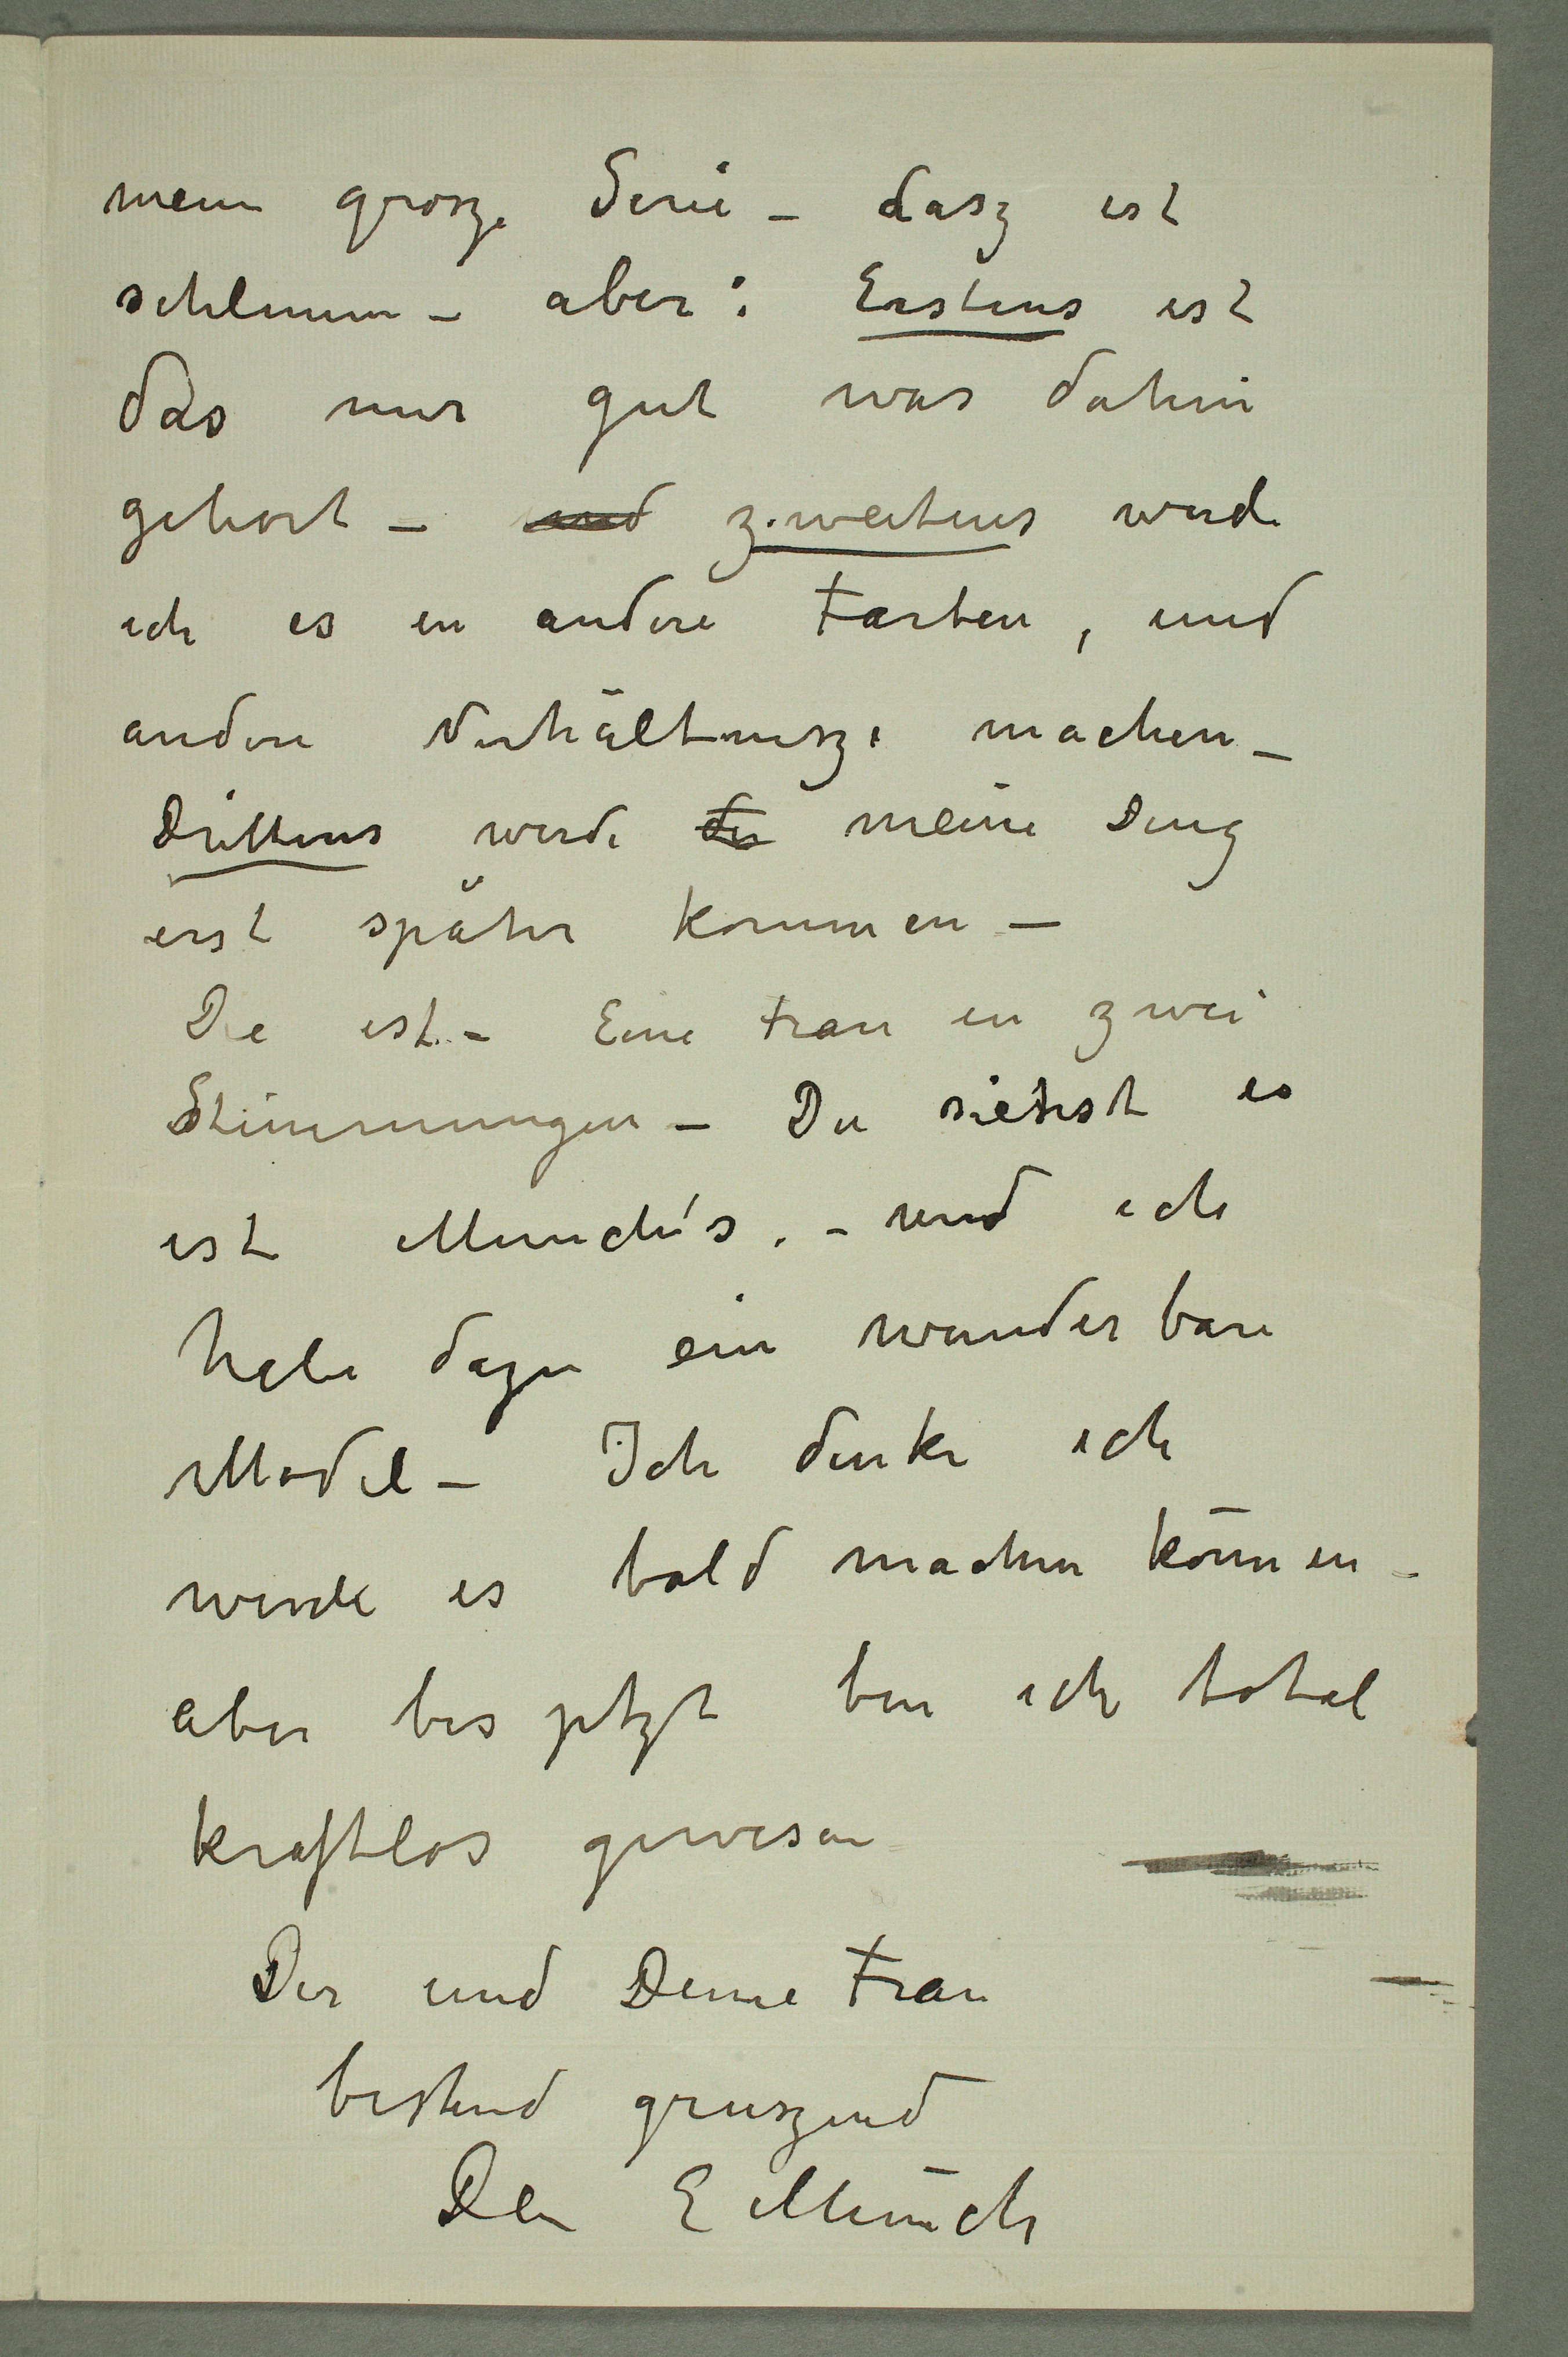 mein grosze Serie – dasz ist
schlimm – aber: Erstens ist
das nur gut was dahin
gehört – und zweitens werde
ich es in andere Farben, und
andere Verhältnisze machen –
Drittens werde der meine Ding
erst später kommen –
Die ist – Eine Frau in zwei
Stimmungen – Du siehst es
ist Munch's. – und ich
habe dazu ein wunderbare
Model – Ich denke ich
werde es bald machen können –
aber bis jetzt bin ich total
kraftlos gewesen
Dir und Deine Frau
bestend gruszend
Dein E Munch